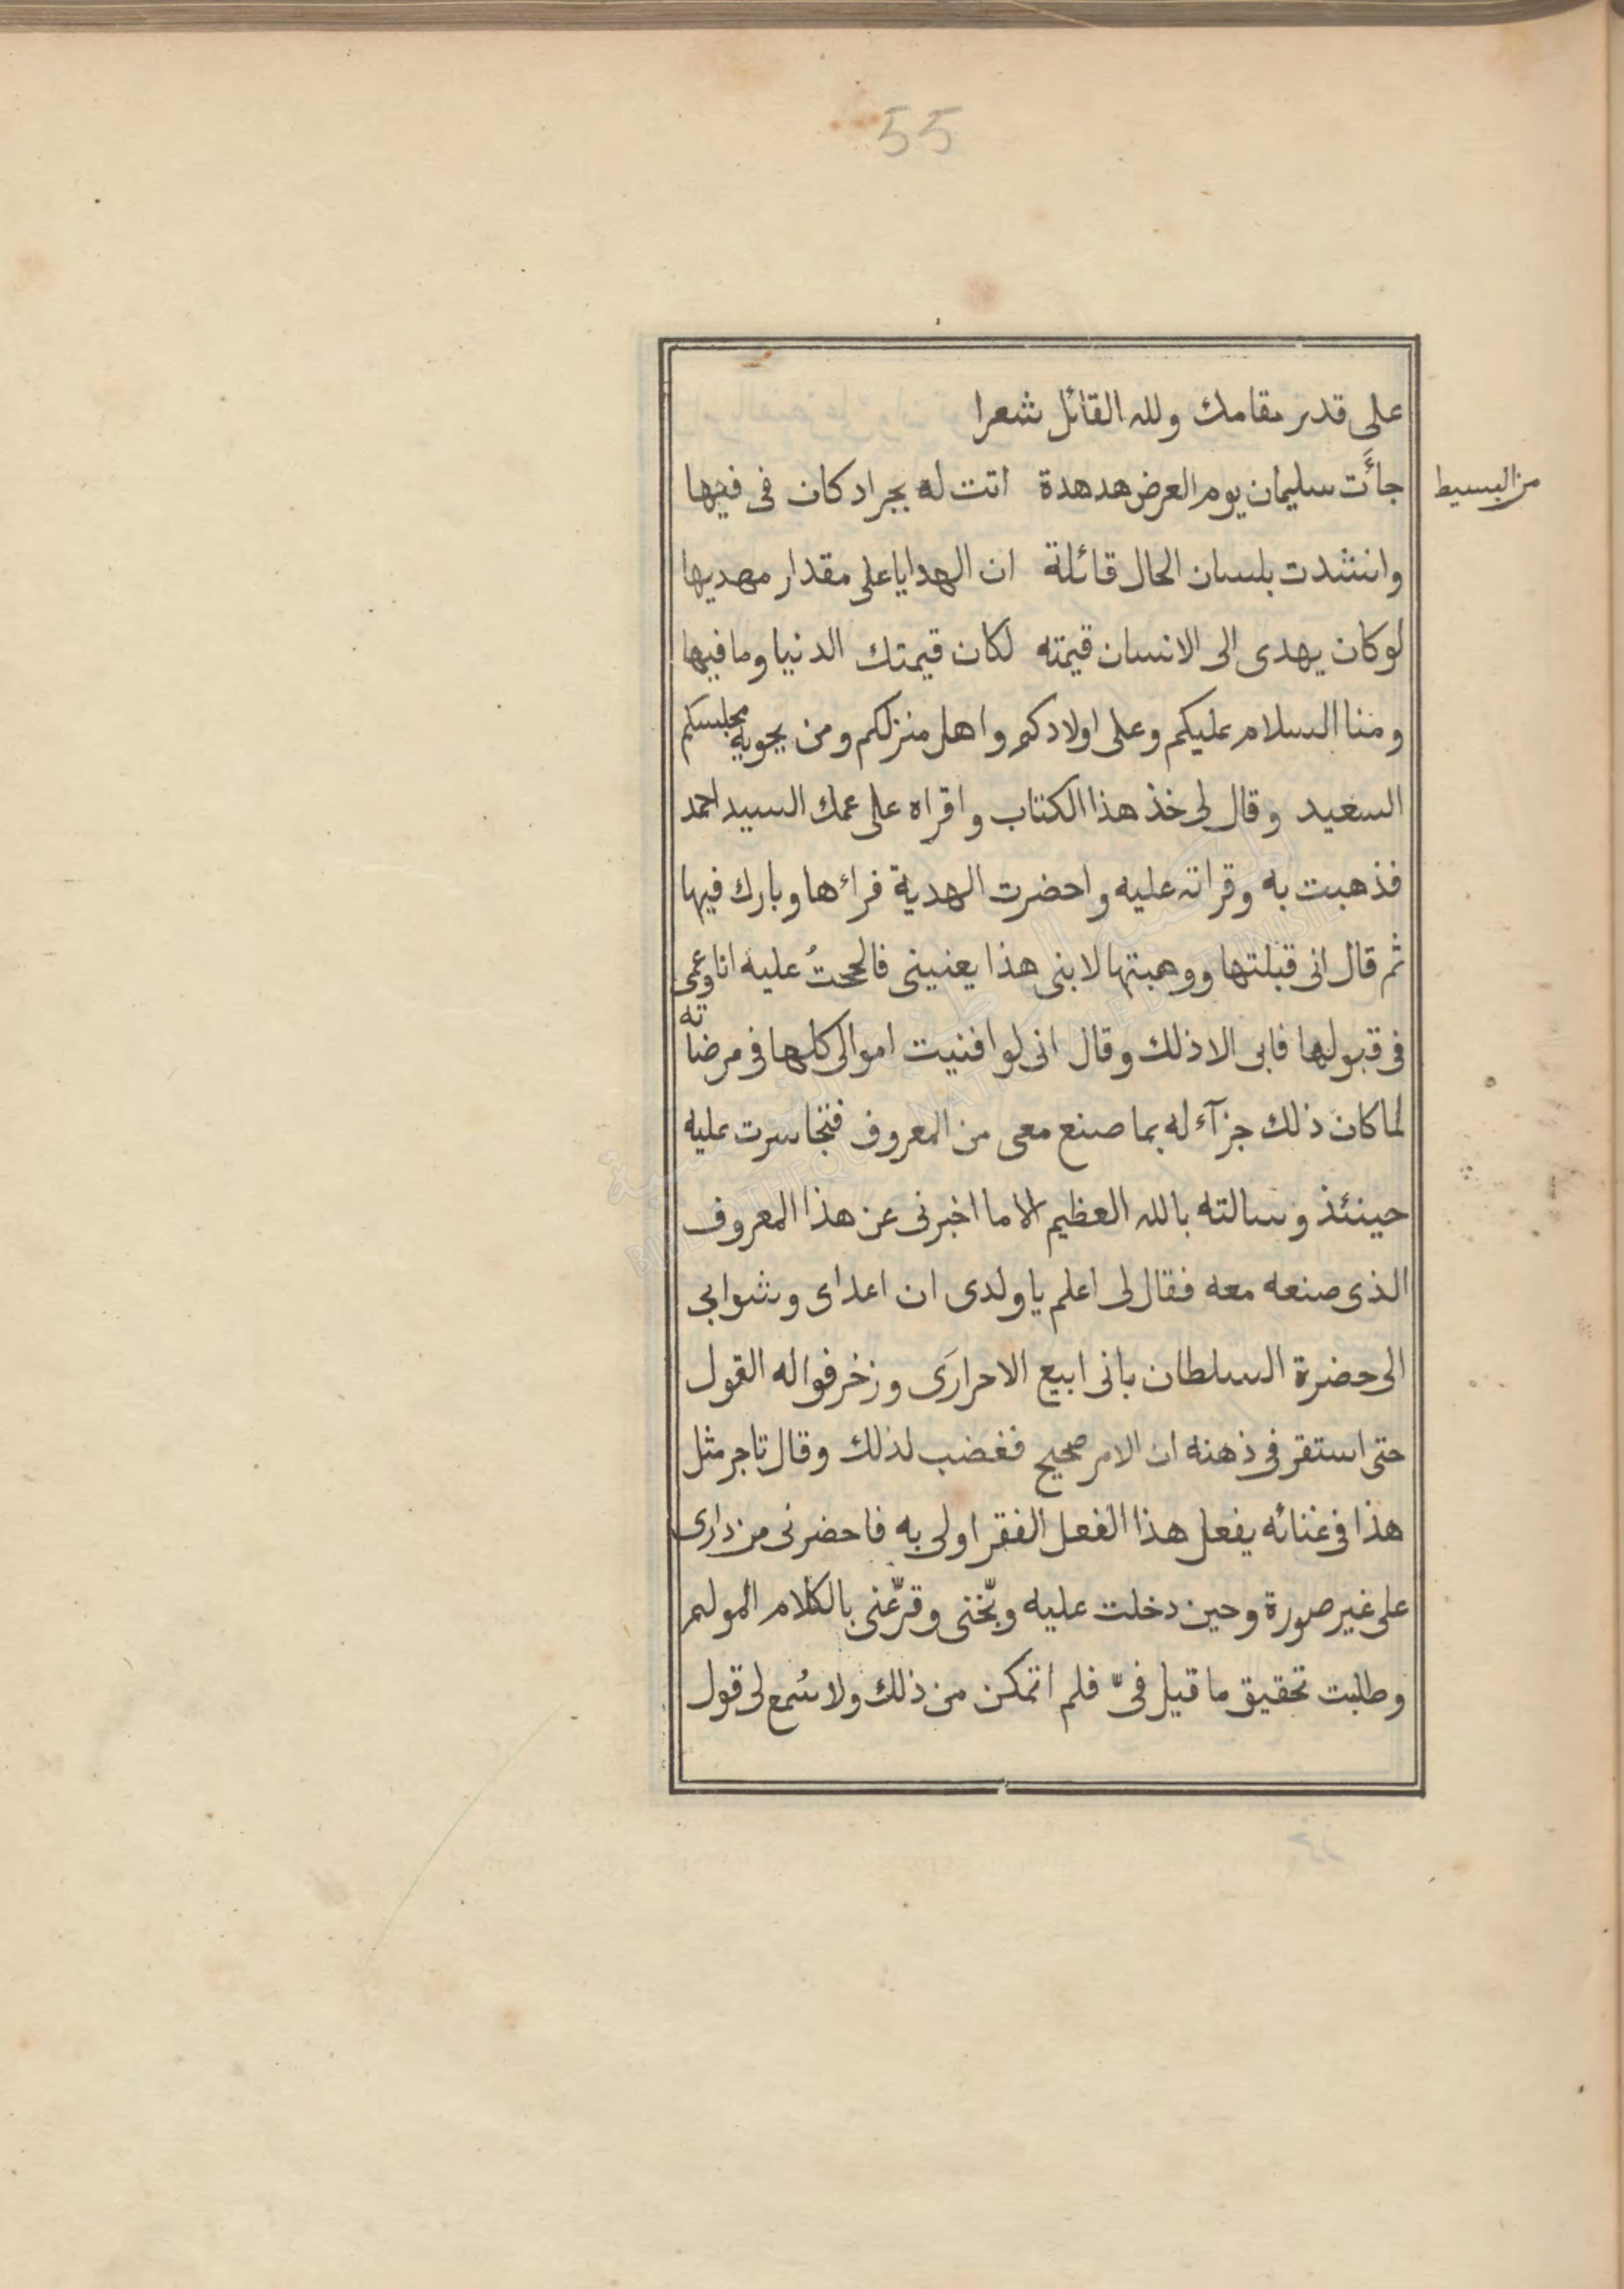 55
على قدر مقامك ولله القائل شعرا
من البسيط
جاأت سليمان يوم العرض هدهدة اتت له بجراد كان فى فيها
وانشدت بلسان الحال قائلة ان الهدايا على مقدار مهديها
لو كان يهدى الى الانسان قيمته لكان قيمتك الدنيا وما فيها
ومنا السلام عليكم وعلى اولادكم واهل منزلكم ومن يحويه مجلسكم
السعيد وقال لى خذ هذا الكتاب واقراه على عمك السيد احمد
فذهبت به وقراته عليه واحضرت الهدية فراءها وبارك فيها
ثم قال انى قبلتها ووهبتها لابنى هذا يعنينى فالححتُ عليه انا وعمى
فى قبولها فابى الا ذلك وقال انى لو افنيت اموالى كلها فى مرضاته
لما كان ذلك جزآء له بما صنع معى من المعروف فتجاسرت عليه
حينئذ وسالته بالله العظيم الا ما اخبرنى عن هذا المعروف
الذى صنعه معه فقال لى اعلم يا ولدى ان اعداى وشوا بى
الى حضرة السلطان بانى ابيع الاحرارَى وزخرفوا له القول
حتى استقر فى ذهنه ان الامر صحيح فغضب لذلك وقال تاجر مثل
هذا فى غنائه يفعل هذا الفعل الفقر اولى به فاحضرنى من دارى
على غير صورة وحين دخلت عليه وبّخنى وقرّعنى بالكلام المولم
وطلبت تحقيق ما قيل فىّ فلم اتمكن من ذلك ولا سُمع لى قول